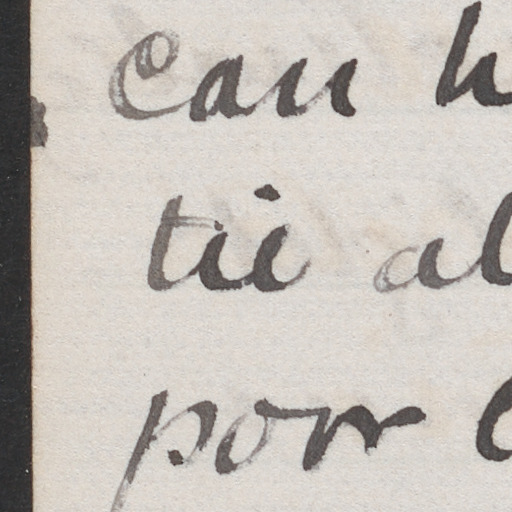 can h
tii al
porr